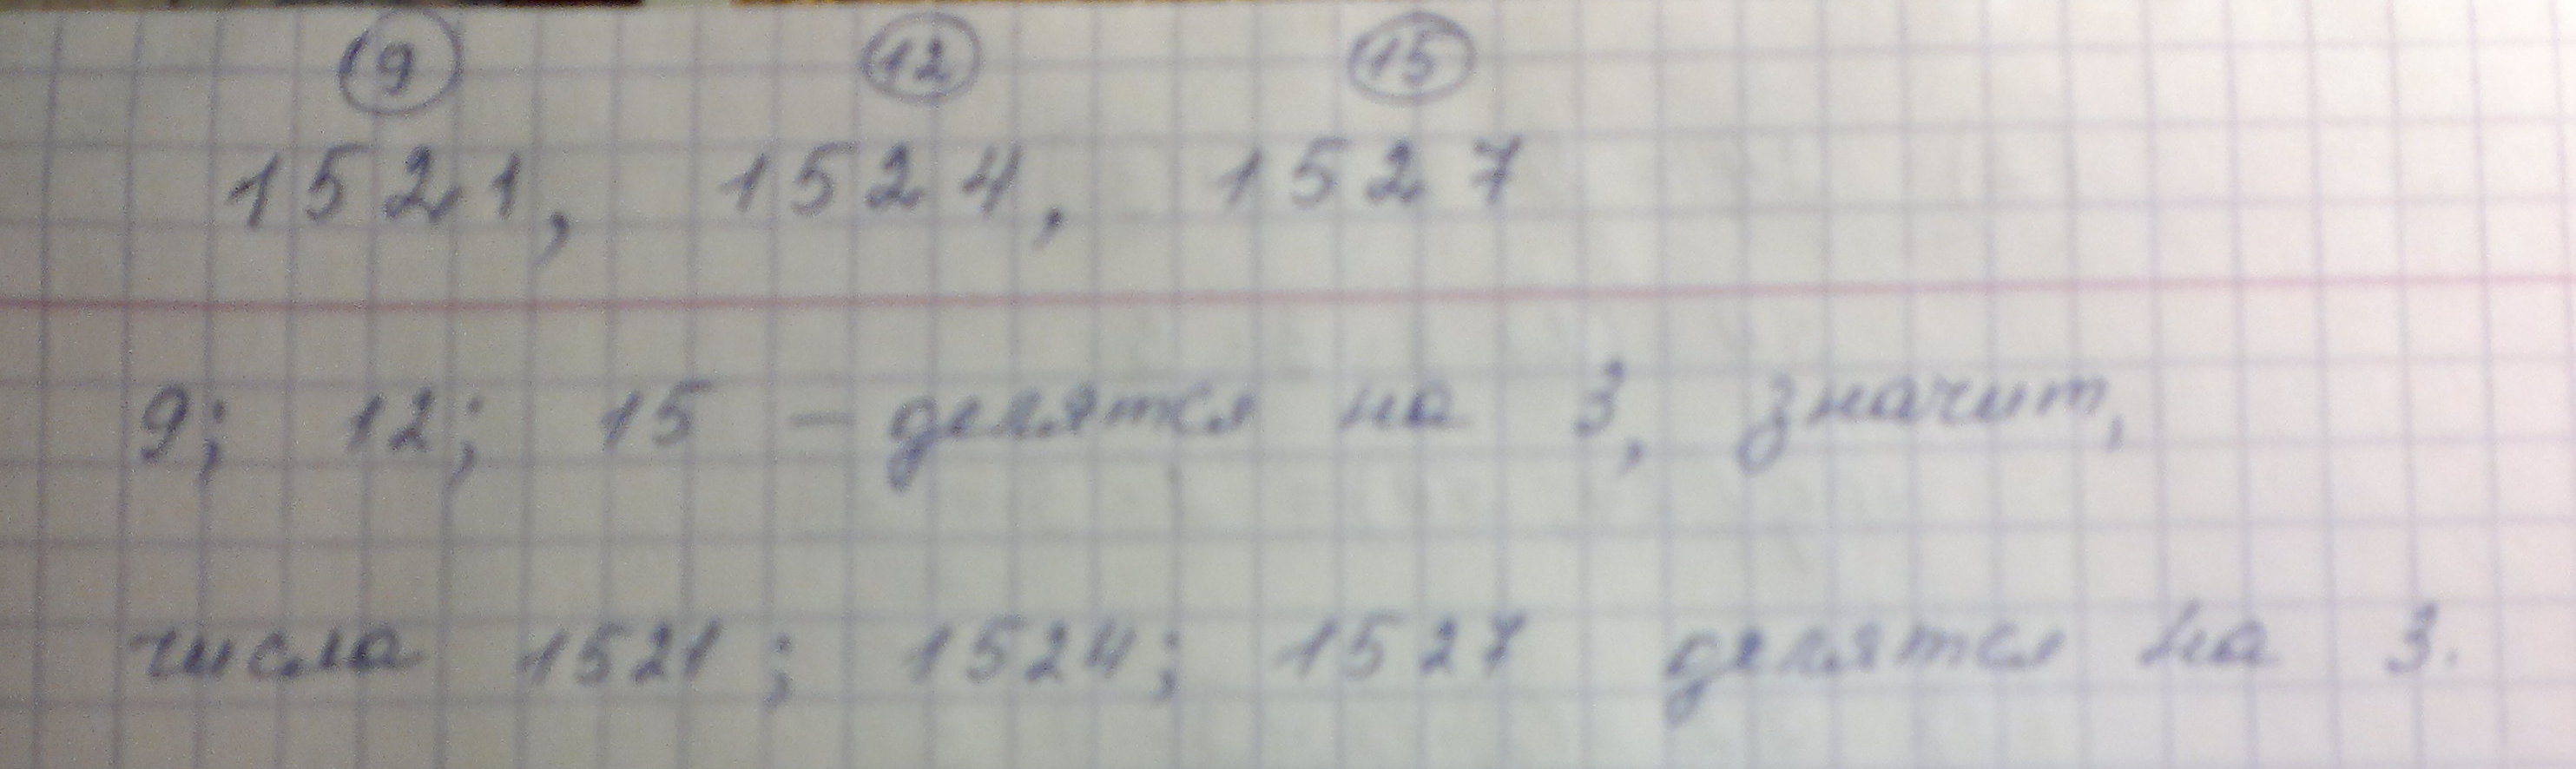 9 12 15
1521, 1524, 1527
9; 12; 15 - делятся на 3, значит,
числа 1521; 1524; 1527 делятся на 3.